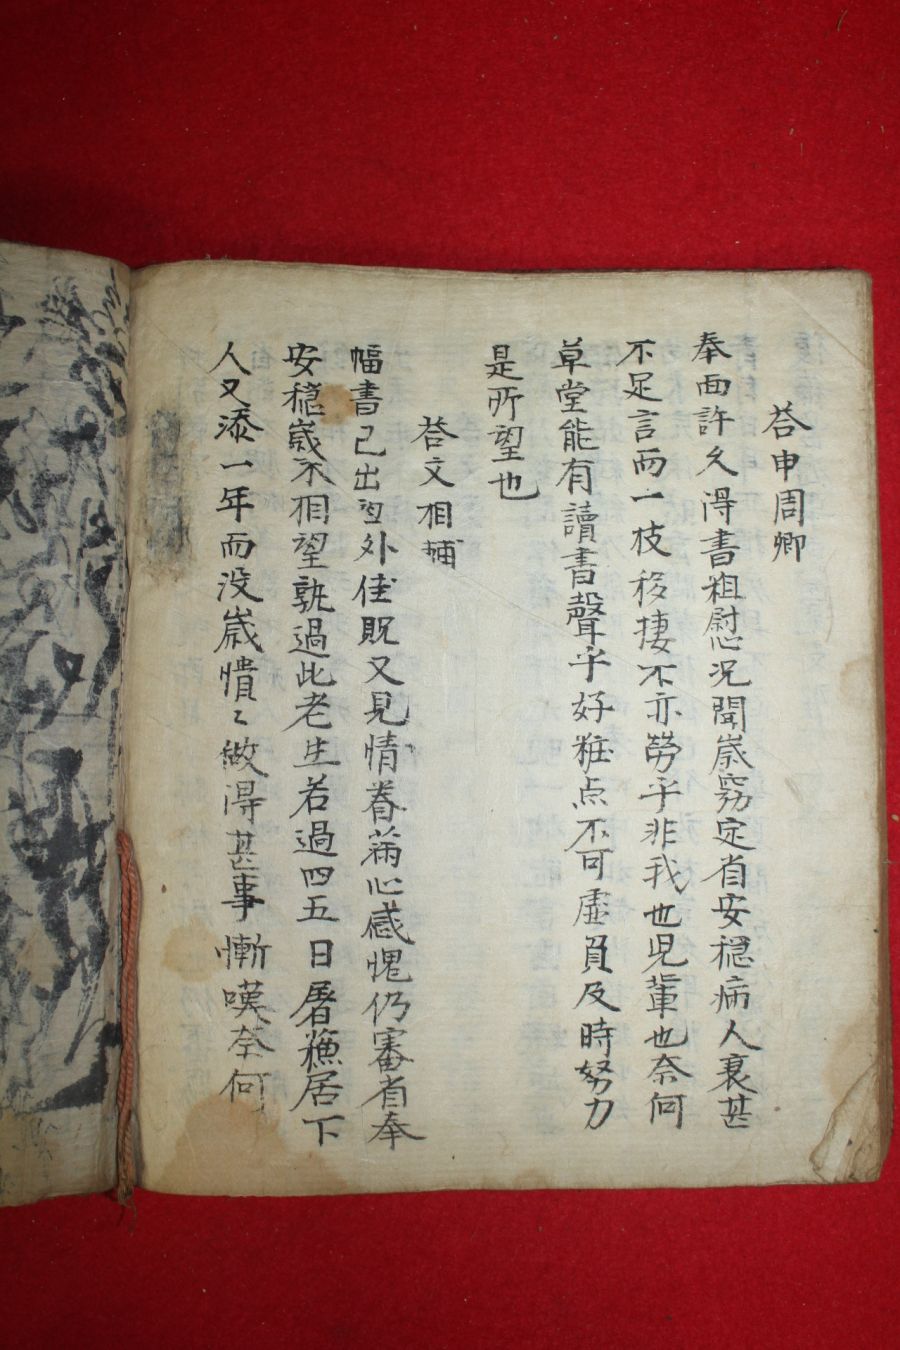 答申周卿
奉面許久得書粗慰况聞嵗窮定省安穏病人衰甚
不足言而一枝移捿不亦勞乎非我也児輩也奈何
草堂能有讀書聲乎好粧点不可虛負及時努力
是所望也
答文相輔
幅書已出望外佳貺又見情眷滿心感愧仍審省奉
安穏嵗不相望孰過此老生若過四五日屠蘓居下
人又添一年而没嵗憒〻做得甚事慚嘆奈何